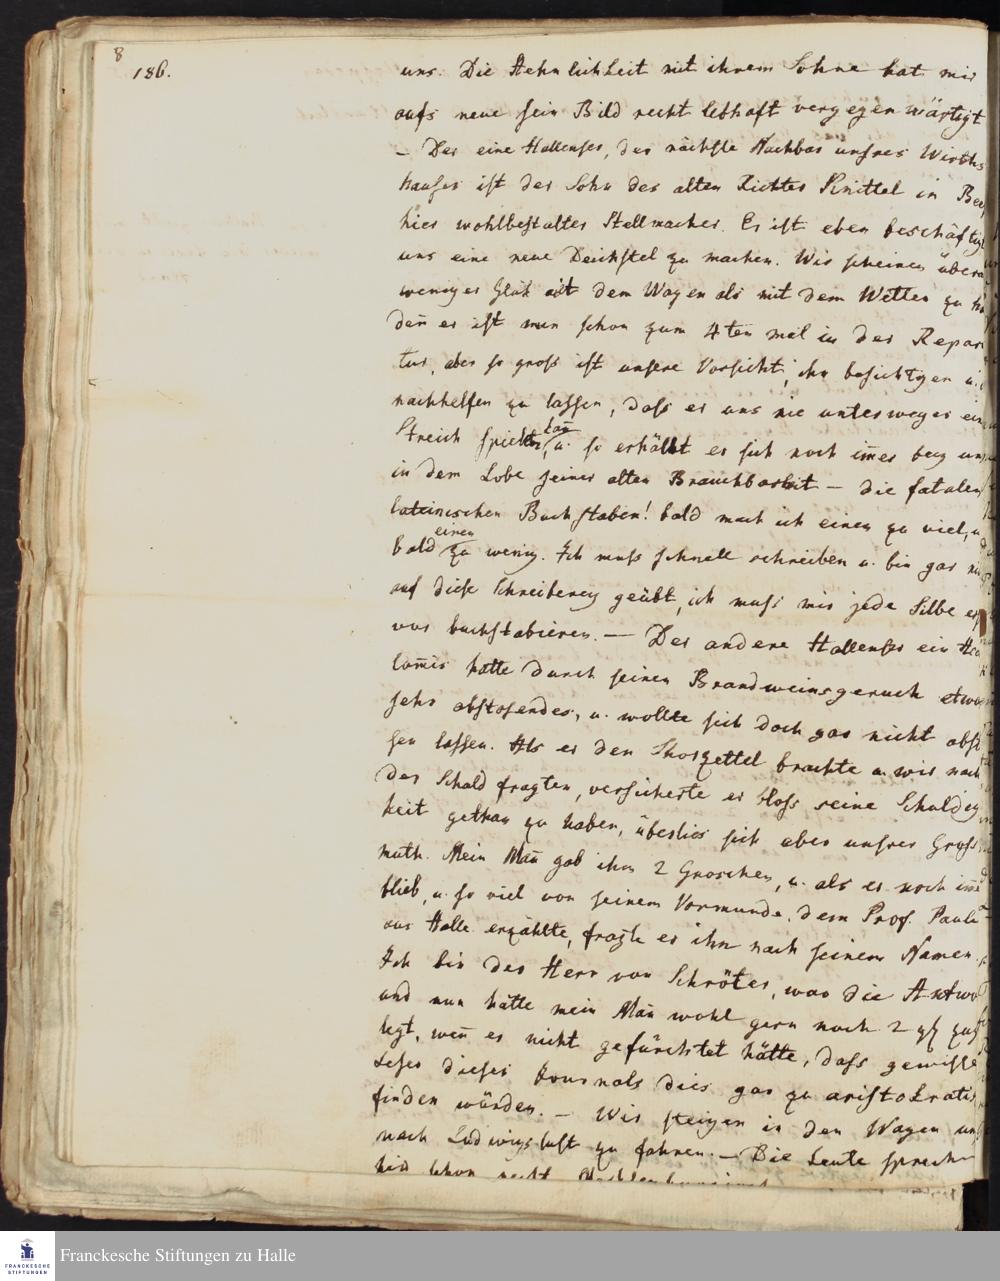 8
186.
uns. Die Aehnlichkeit mit ihrem Sohne hat mir
aufs neue sein Bild recht lebhaft vergegenwärtigt
– Der eine Hallenser, der nächste Nachbar unsres Wirths
hauses ist der Sohn des alten Richter Knittel in Bee
hier wohlbestalter Stellmacher. Er ist eben beschäftigt
uns eine neue Deichstel zu machen. Wir scheinen übera
weniger Glük mit dem Wagen als mit dem Wetter zu ha
den̄ er ist nun schon zum 4ten mal in der Repar
tur, aber so gross ist unsere Vorsicht, ihn besichtigen u.
nachhelfen zu lassen, dass er uns nie unterweges ein
Streich spielen kan̄, u. so erhält er sich noch im̄er bey uns
in dem Lobe seiner alten Brauchbarkeit – die fatalen
lateinischen Buchstaben! bald mach ich einen zu viel, u
bald einen zu wenig. Ich muss schnell schreiben u. bin gar ni
auf diese Schreiberey geübt, ich muss mir jede Silbe er
vor buchstabieren. — Der andere Hallenser ein
lom̄is hatte durch seinen Brandweinsgeruch etwas
sehr abstosendes, u. wollte sich doch gar nicht abst
sen lassen. Als er den Thorzettel brachte u. wir nach
der Schuld fragten, versicherte er bloss seine Schuldig
keit gethan zu haben, überlies sich aber unsrer Gross
muth. Mein Man̄ gab ihm 2 Groschen, u. als er noch im̄e
blieb, u. so viel von seinem Vormunde, dem Prof. Pauli
aus Halle erzählte, fragte er ihn nach seinem Namen.
Ich bin der Herr von Schröter, war die Antwo
und nun hätte mein Man̄ wohl gern noch 2 gr zug
legt, wen̄ er nicht gefürchtet hätte, dass gewisse
Leser dieses Journals dies gar zu aristokratis
finden würden. – Wir steigen in den Wagen um
nach Ludwigslust zu fahren. – Die Leute sprechen
hier schon recht
FRANCKESCHE
STIFTUNGEN
Franckesche Stiftungen zu Halle